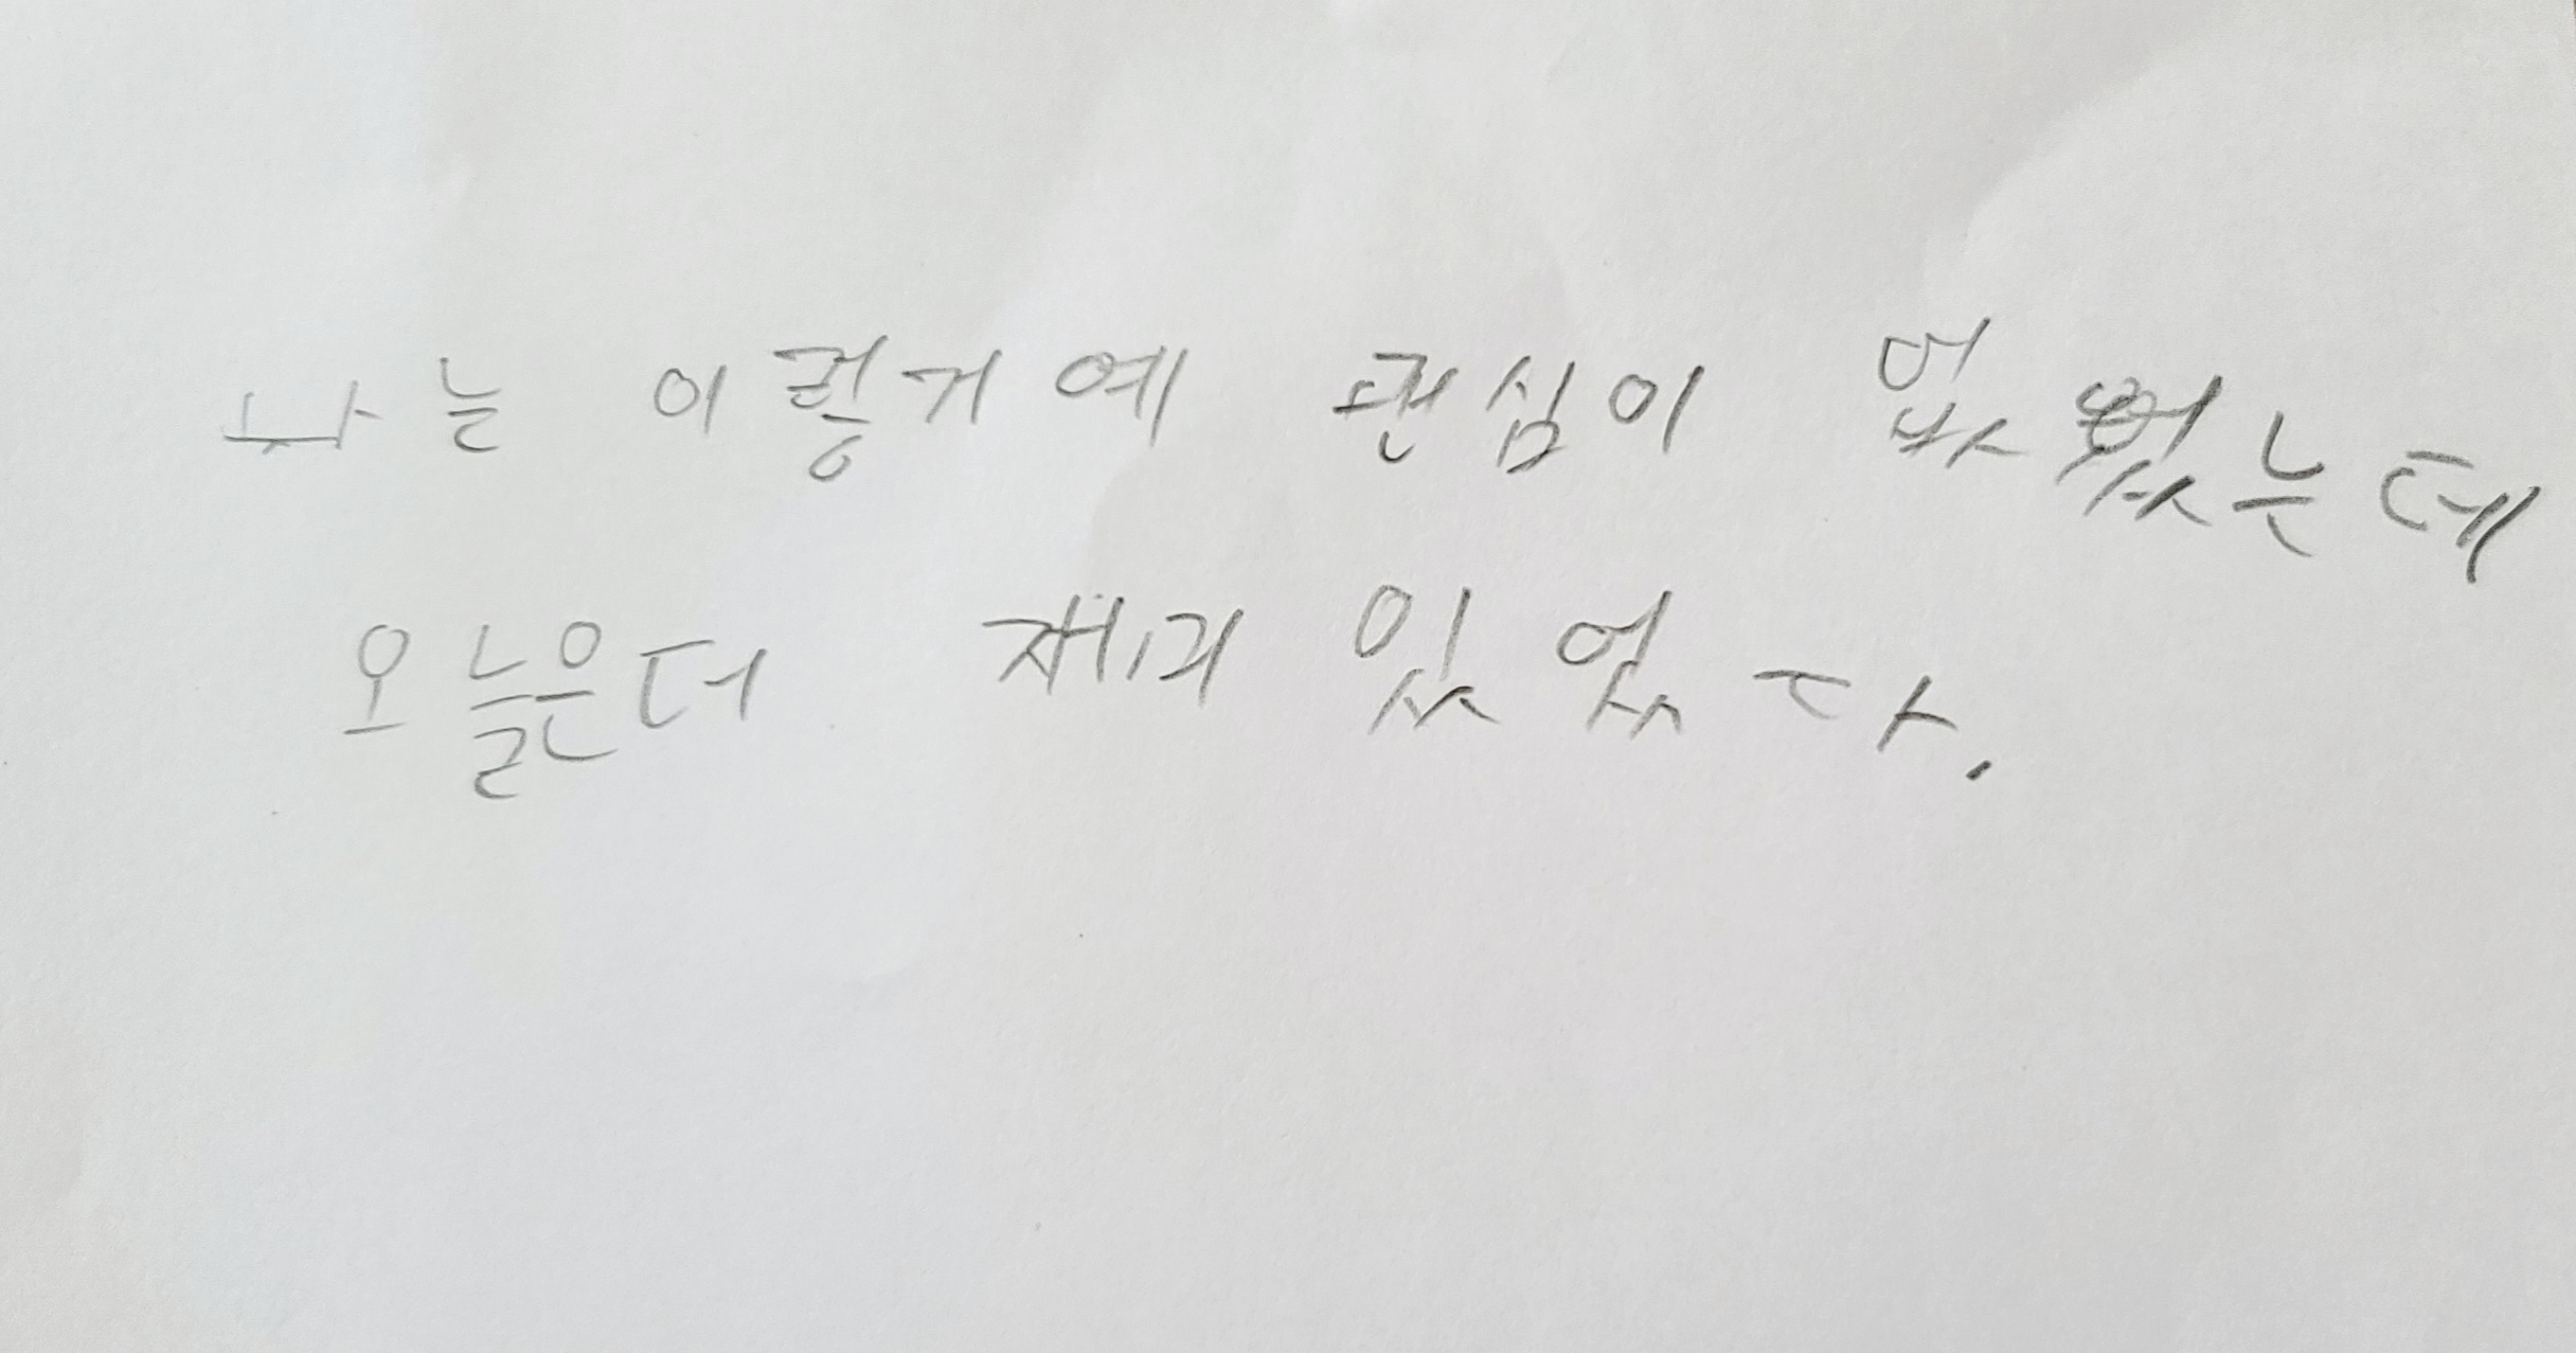 나는 이렇거에 관심이 없었는데
오늘은더 재미 있었다.